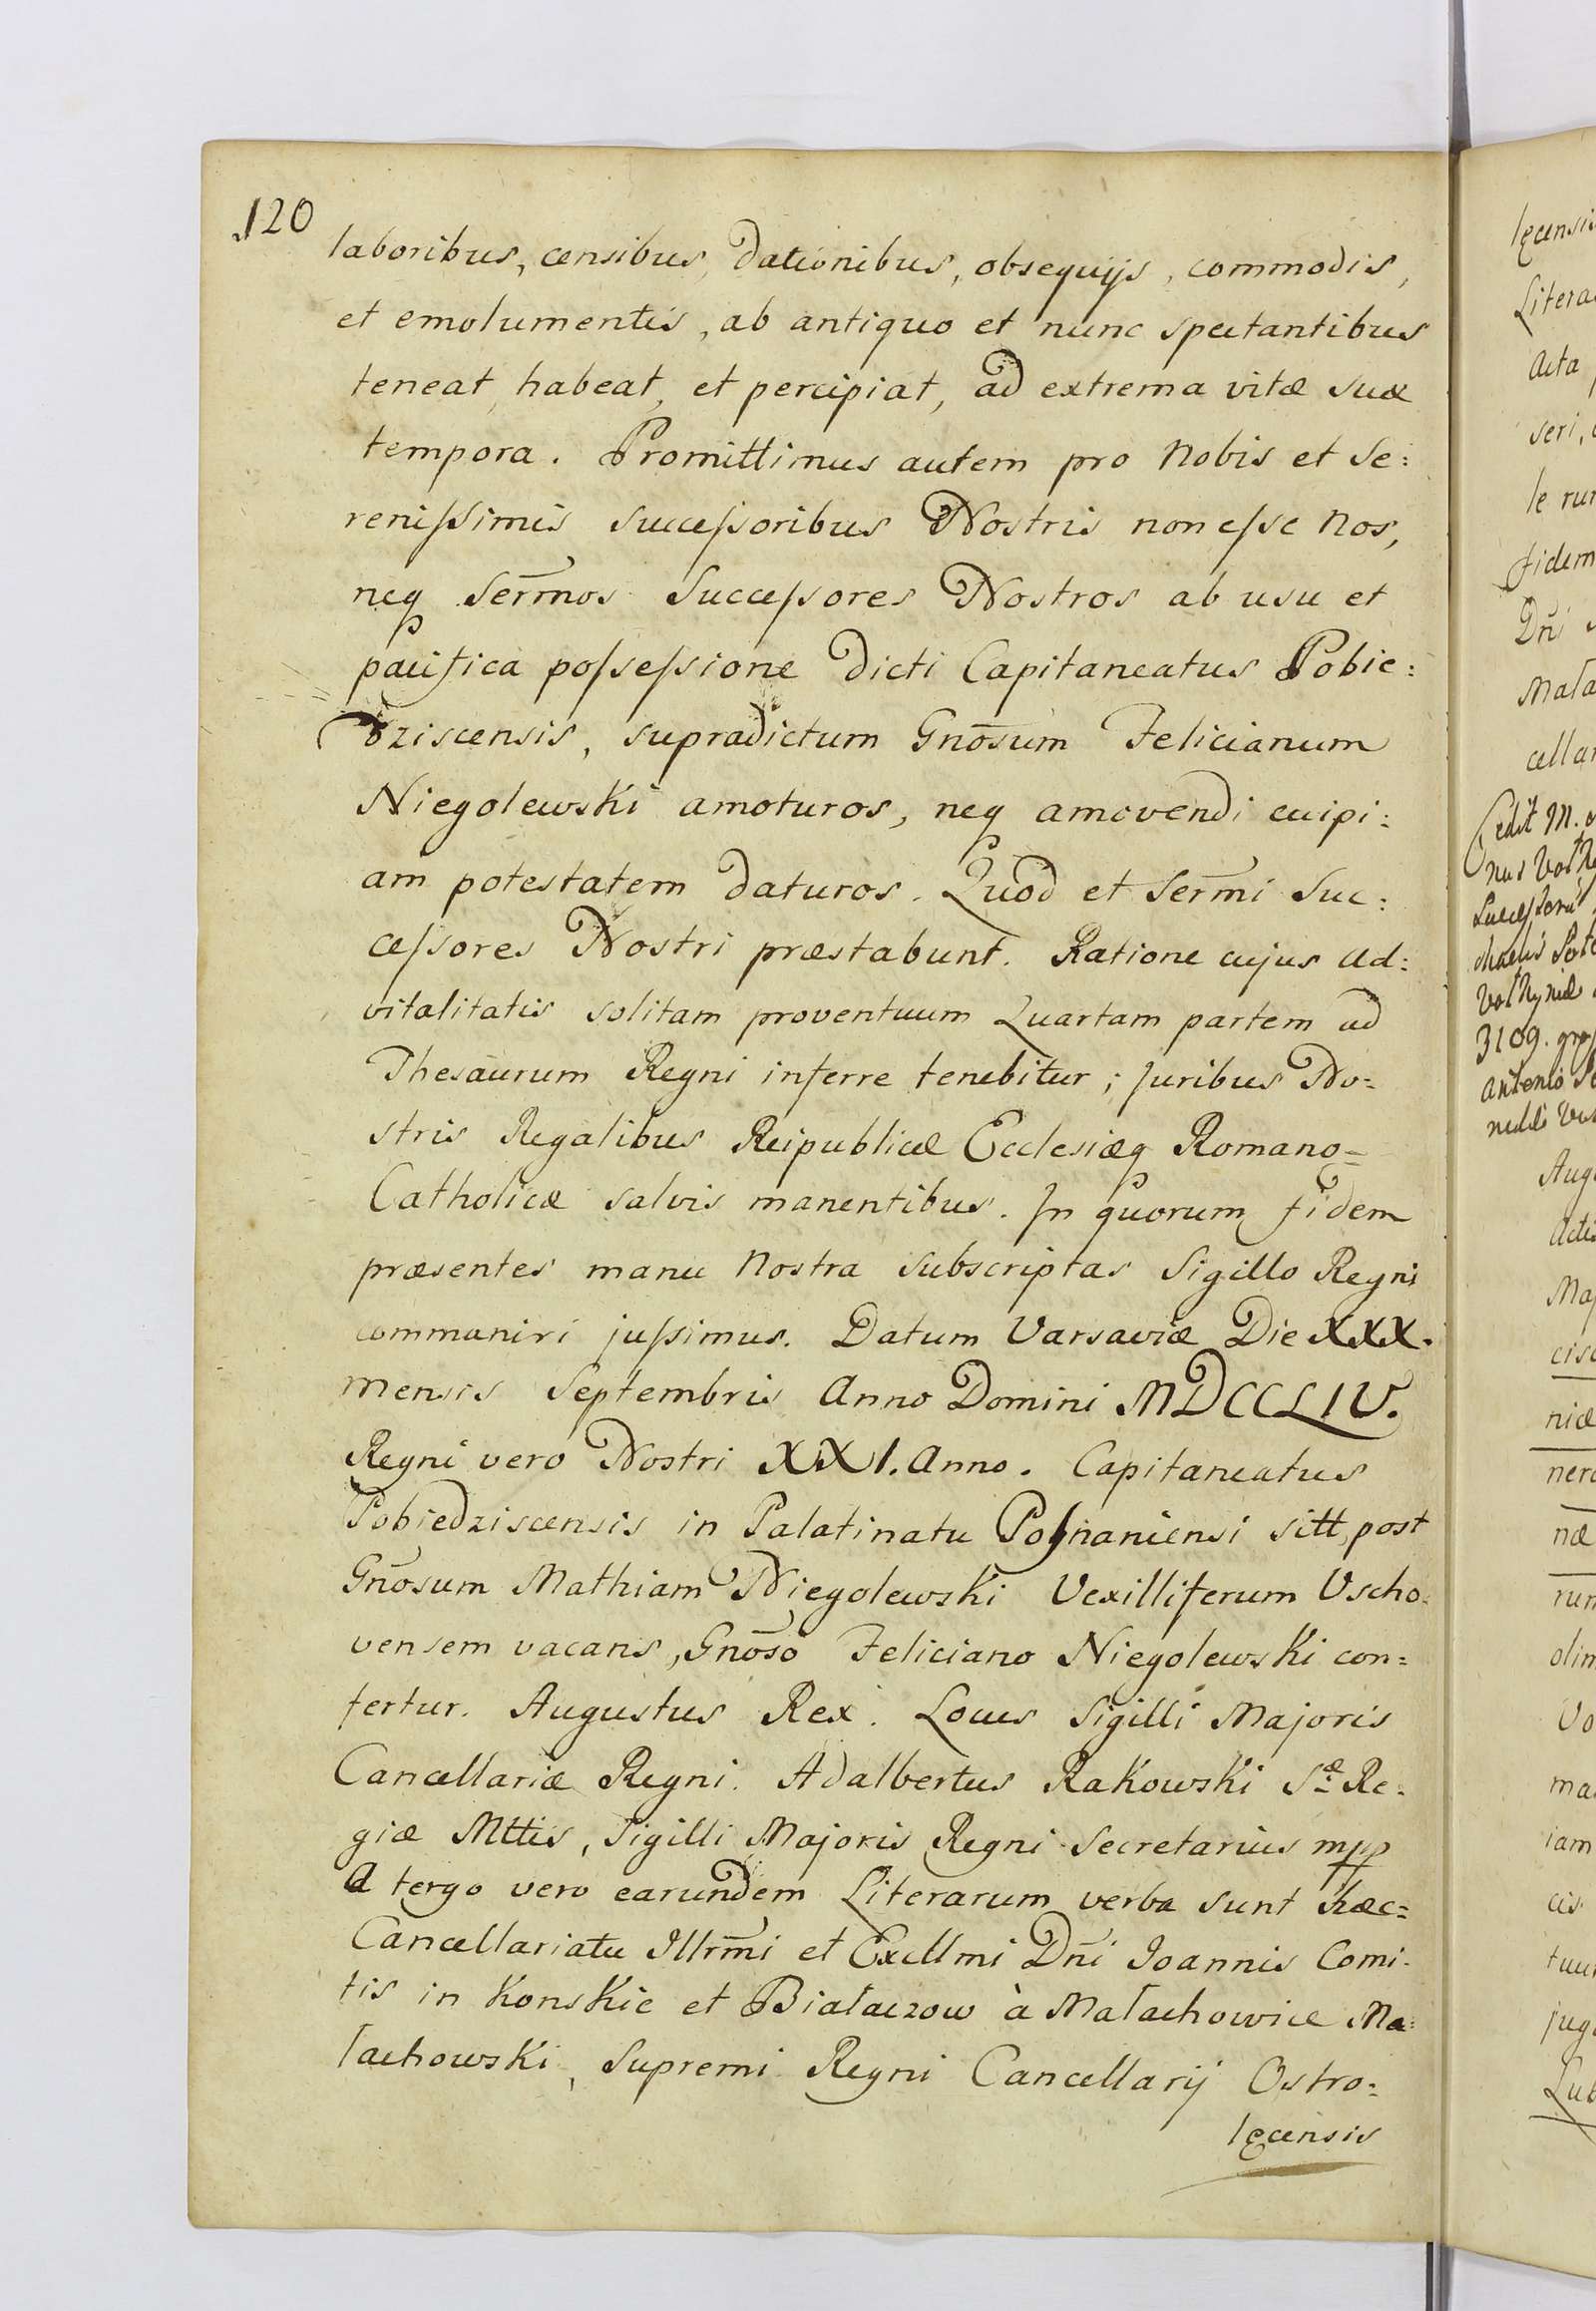 120
laboribus, censibus, dationibus, obsequijs, commodis,
et emolumentis, ab antiquo et nunc spectantibus
teneat, habeat, et percipiat, ad extrema vitæ suæ
tempora. Promittimus autem pro Nobis et Se:
reniſsimis Succeſsoribus Nostris non eſse Nos,
neq Serm̄os Succeſsores Nostros ab usu et
pacifica poſseſsione dicti Capitaneatus Pobie:
dziscensis, supradictum Gnōsum Felicianum
Niegolewski amoturos, neq amovendi cuipi:
am potestatem daturos. Quod et Serm̄i Suc:
ceſsores Nostri præstabunt. Ratione cujus Ad:
vitalitatis solitam proventuum Quartam partem ad
Thesaurum Regni inferre tenebitur; Juribus No:
stris Regalibus Reipublicæ Ecclesiæq Romano=
Catholicæ salvis manentibus. In quorum fidem
præsentes manu Nostra subscriptas Sigillo Regni
communiri juſsimus. Datum Varsaviæ Die XXX.
mensis Septembris Anno Domini MDCCLIV.
Regni vero Nostri XXI. Anno. Capitaneatus
Pobiedziscensis in Palatinatu Posnaniensi sitt, post
Gnōsum Mathiam Niegolewski Vexilliferum Vscho:
vensem vacans, Gnōso Feliciano Niegolewski con=
fertur. Augustus Rex. Locus Sigilli Majoris
Cancellariæ Regni. Adalbertus Rakowski Sæ Re:
giæ Mttis, Sigilli Majoris Regni Secretarius mpp
A tergo vero earundem Literarum verba sunt hæc=
Cancellariatu Illrm̄i et Excllmi Dn̄i Joannis Comi:
tis in Konskie et Białaczow à Małachowice Ma:
łachowski, Supremi Regni Cancellarij Ostro:
lęcensis
lęcensis
Litera
Acta
seri,
le
fidem
Dn̄i
Mała
cellar
Cedit M.
nus
3109.
Antonio
Aug
Ma
cis
niæ
næ
olim
Vo
ma
iam
cis
jug
Lub